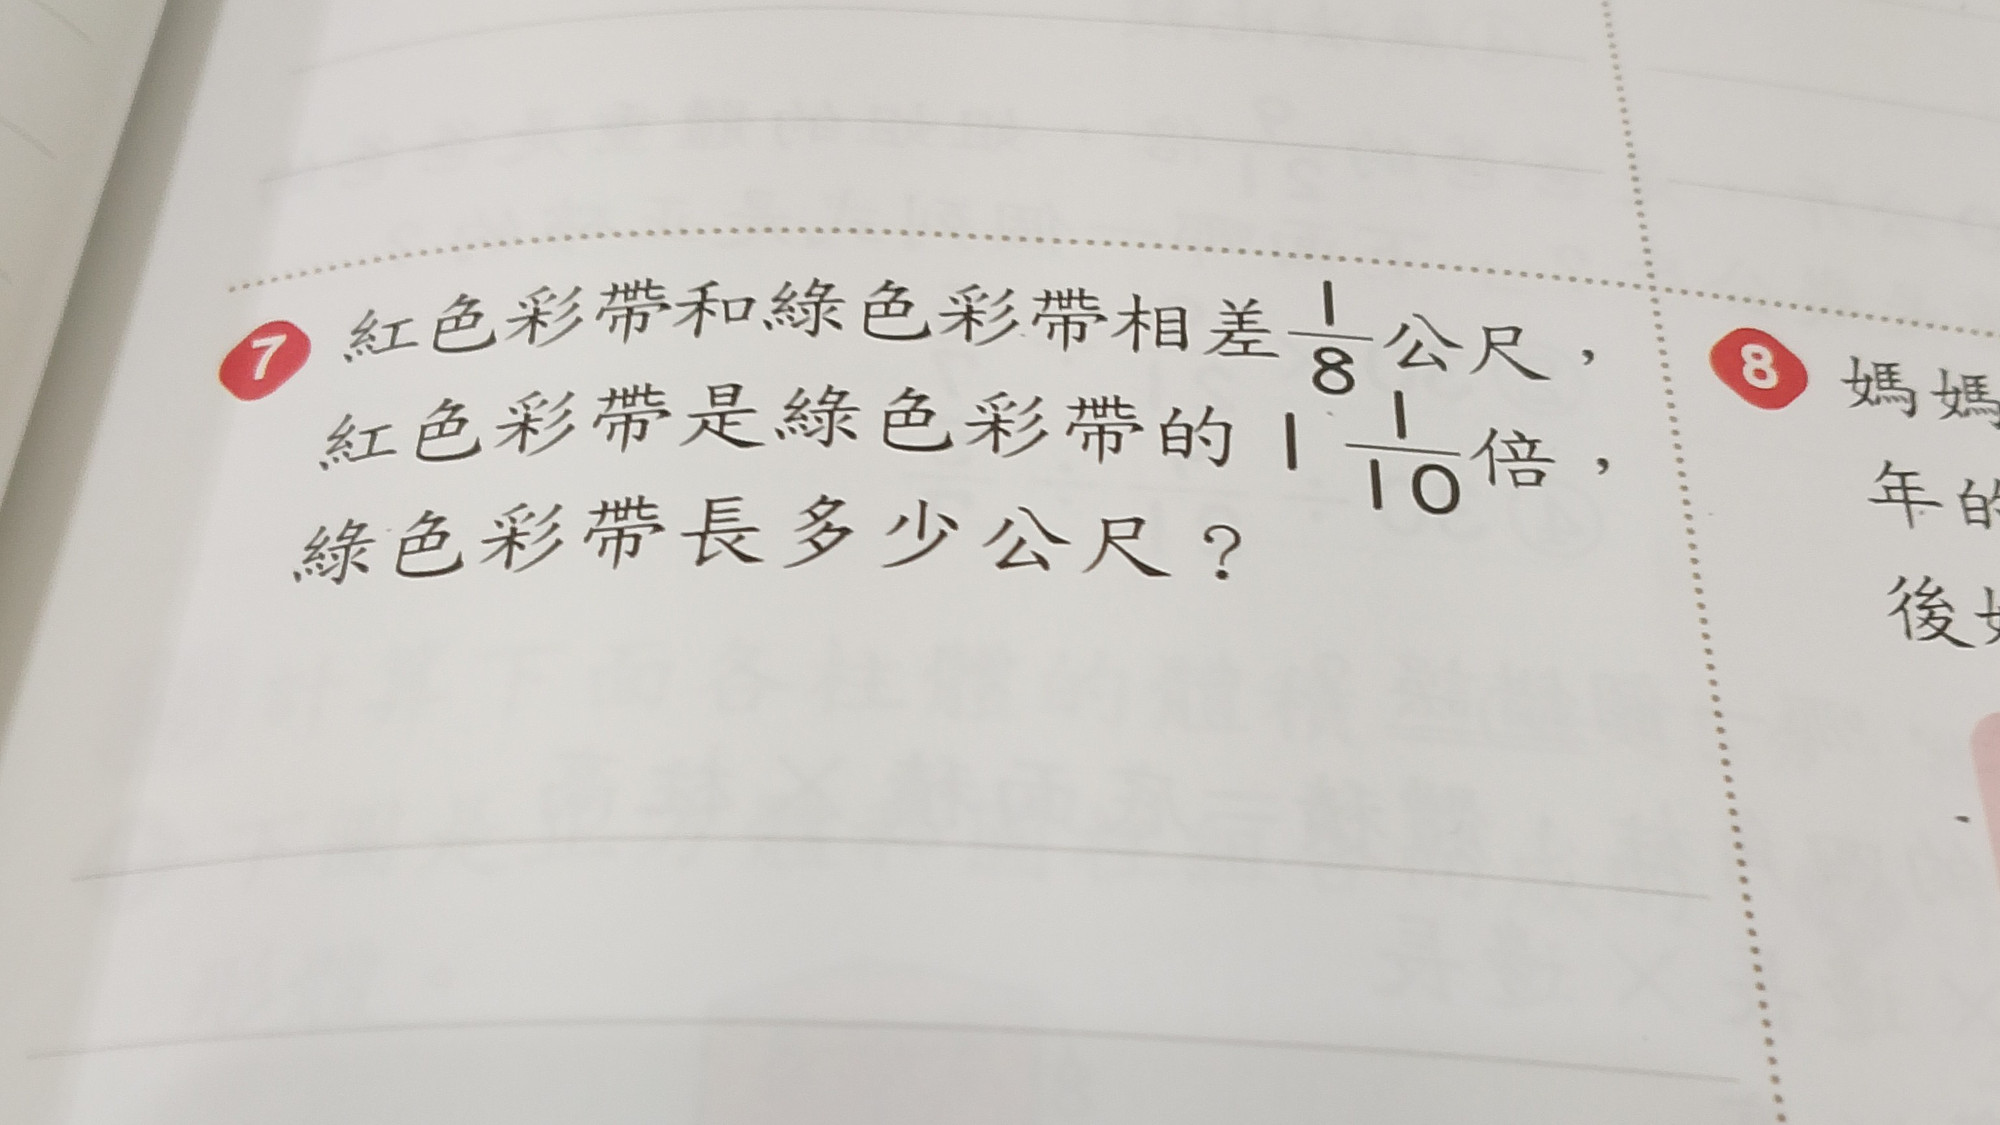 7 紅色彩帶和綠色彩帶相差1/8公尺，
紅色彩帶是綠色彩帶的 1 1/10倍，
綠色彩帶長多少公尺？
8 媽媽
年的
後